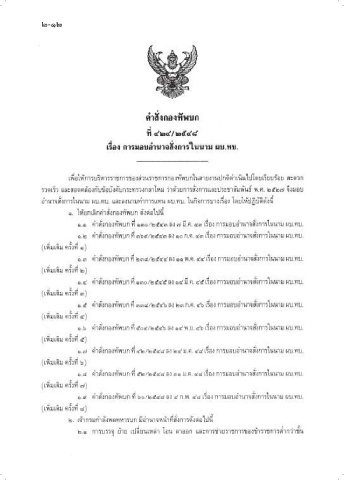 ๒-๑๒
คำสั่งกองทัพบก
ที่ ๔๒๔/๒๕๔๘
เรื่อง การมอบอำนาจสั่งการในนาม ผบ.ทบ.
เพื่อให้การบริหารราชการของส่วนราชการกองทัพบกในสายงานปกติดำเนินไปโดยเรียบร้อย สะดวก
รวดเร็ว และสอดคล้องกับข้อบังคับกระทรวงกลาโหม ว่าด้วยการสั่งการและประชาสัมพันธ์ พ.ศ. ๒๕๒๗ จึงมอบ
อำนาจสั่งการในนาม ผบ.ทบ. และลงนามทำการแทน ผบ.ทบ. ในกิจการบางเรื่อง โดยให้ปฏิบัติดังนี้
๑. ให้ยกเลิกคำสั่งกองทัพบก ดังต่อไปนี้
๑.๑ คำสั่งกองทัพบก ที่ เรื่อง การมอบอำนาจสั่งการในนาม ผบ.ทบ.
๑.๒ คำสั่งกองทัพบก ที่ เรื่อง การมอบอำนาจสั่งการในนาม ผบ.ทบ.
(เพิ่มเติม ครั้งที่ ๑)
๑.๓ คำสั่งกองทัพบก ที่ เรื่อง การมอบอำนาจสั่งการในนาม ผบ.ทบ.
(เพิ่มเติม ครั้งที่ ๒)
๑.๔ คำสั่งกองทัพบก ที่ เรื่อง การมอบอำนาจสั่งการในนาม ผบ.ทบ.
(เพิ่มเติม ครั้งที่ ๓)
๑.๕ คำสั่งกองทัพบก ที่ เรื่อง การมอบอำนาจสั่งการในนาม ผบ.ทบ.
(เพิ่มเติม ครั้งที่ ๔)
๑.๖ คำสั่งกองทัพบก ที่ เรื่อง การมอบอำนาจสั่งการในนาม ผบ.ทบ.
(เพิ่มเติม ครั้งที่ ๕)
๑.๗ คำสั่งกองทัพบก ที่ เรื่อง การมอบอำนาจสั่งการในนาม ผบ.ทบ.
(เพิ่มเติม ครั้งที่ ๖)
๑.๘ คำสั่งกองทัพบก ที่ เรื่อง การมอบอำนาจสั่งการในนาม ผบ.ทบ.
(เพิ่มเติม ครั้งที่ ๗)
๑.๙ คำสั่งกองทัพบก ที่ เรื่อง การมอบอำนาจสั่งการในนาม ผบ.ทบ.
(เพิ่มเติม ครั้งที่ ๘)
๒. เจ้ากรมกำลังพลทหารบก มีอำนาจหน้าที่สั่งการดังต่อไปนี้
๒.๑ การบรรจุ ย้าย เปลี่ยนเหล่า โอน ลาออก และการช่วยราชการของข้าราชการต่ำกว่าชั้น